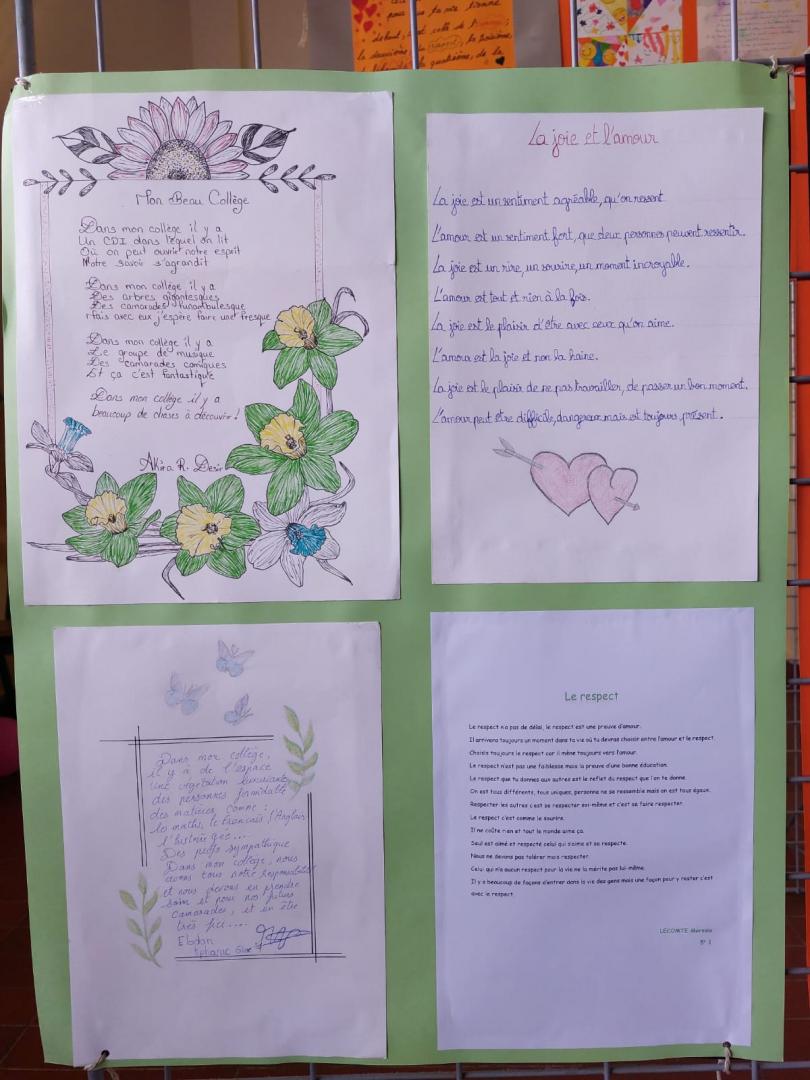 Mon Beau Collège
Dans mon collège il y a
Un CDI dans lequel on lit
Où on peut ouvrir notre esprit
Notre savoir s'agrandit
Dans mon collège il y a
Des arbres gigantesques
Des camarades funambulesque
Mais avec eux j'espère faire une fresque
Dans mon collège il y a
Le groupe de musique
Des camarades comiques
Et ça c'est fantastique
Dans mon collège il y a
beaucoup de choses à découvrir !
Akira R. Desir
La joie et l'amour
La joie est un sentiment agréable, qu'on ressent
L'amour est un sentiment fort, que deux personnes peuvent ressentir.
La joie est un rire, un sourire, un moment incroyable.
L'amour est tout et rien à la fois.
La joie est le plaisir d'être avec ceux qu'on aime.
L'amour est la joie et non la haine.
La joie est le plaisir de ne pas travailler, de passer un bon moment.
L'amour peut être difficile, dangereux mais est toujours présent.
Dans mon collège,
il y a de l'espace
une végétation luxuriante
des personnes formidable
des matières comme :
les maths, le français l'Anglais
l'histoire géo...
Des profs sympathique
Dans mon collège, nous
avons tous notre responsabilité
et nous devons en prendre
soin et pour nos futurs
camarades, et en être
très fier....
Le respect
Le respect n'a pas de délai, le respect est une preuve d'amour.
Il arrivera toujours un moment dans ta vie où tu devras choisir entre l'amour et le respect.
Choisis toujours le respect car il mène toujours vers l'amour.
Le respect n'est pas une faiblesse mais la preuve d'une bonne éducation.
Le respect que tu donnes aux autres est le reflet du respect que l'on te donne.
On est tous différents, tous uniques, personne ne se ressemble mais on est tous égaux.
Respecter les autres c'est se respecter soi-même et c'est se faire respecter.
Le respect c'est comme le sourire.
Il ne coûte rien et tout le monde aime ça.
Seul est aimé et respecté celui qui s'aime et se respecte.
Nous ne devons pas tolérer mais respecter.
Celui qui n'a aucun respect pour la vie ne la mérite pas lui-même.
Il y a beaucoup de façons d'entrer dans la vie des gens mais une façon pour y rester c'est
avec le respect.
LECOMTE